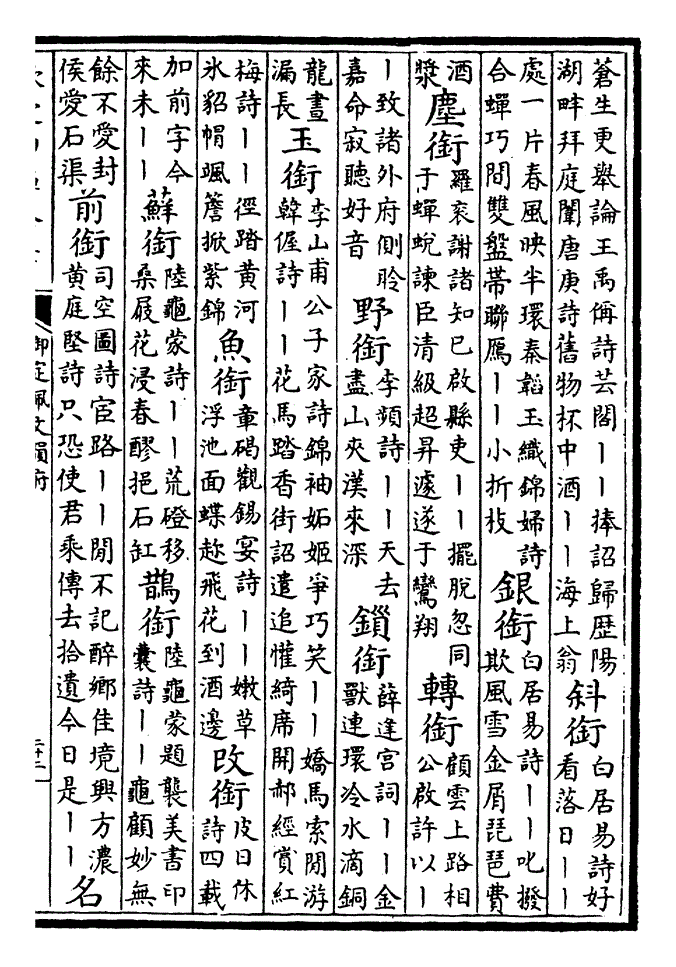 蒼生更舉論王禹偁詩芸閣——捧詔歸歷陽湖畔拜庭闈唐庚詩舊物杯中酒——海上翁 斜銜 白居易詩好看落日——
處一片春風映半環秦韜玉織錦婦詩合蟬巧間雙盤帶聯鴈——小折枝 銀銜 白居易詩——叱撥欺風雪金屑琵琶費
酒漿 塵銜 羅衮謝諸知已啟縣吏——擺脫忽同于蟬蛻諫臣清級超昇遽遂于鸞翔 轉銜 顧雲上路相公啟許以—
—致諸外府側聆嘉命寂聽好音 野銜 李頻詩——天去盡山夾漢來深 鎖銜 薛逢宮詞——金獸連環冷水滴銅
龍晝漏長 玉銜 李山甫公子家詩錦袖妬姬爭巧笑——嬌馬索閒游韓偓詩——花馬踏香街詔遣追懽綺席開郝經賞紅
梅詩——徑踏黃河氷貂帽颯簷掀紫錦 魚銜 章碣觀錫宴詩——嫩草浮池面蝶趂飛花到酒邊 改銜 皮日休詩四載
加前字今來未—— 蘇銜 陸龜蒙詩——荒磴移桑屐花浸春醪挹石缸 鵲銜 陸龜蒙題襲美書印囊詩——龜顧妙無
餘不愛封侯愛石渠 前銜 司空圖詩宦路——閒不記醉鄉佳境興方濃黃庭堅詩只恐使君乘傳去拾遺今日是—— 名
御定佩文韻府